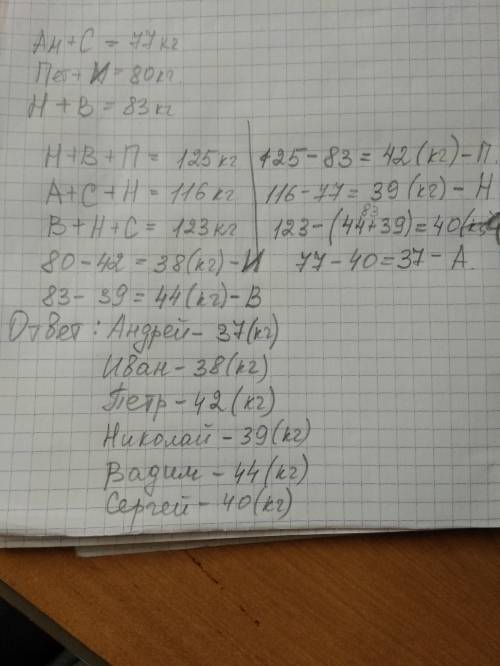 Ан+С = 77кг
Пет+И = 80кг
Н + В = 83кг
Н+В+П = 125кг
125-83 = 42(кг)-П.
А+С+Н = 116кг
116-77 = 39(кг) - Н
83
В+Н+С = 123кг
123-(44+39) = 40(кг)-С
80-42 = 38(кг)-И
77-40=37- А.
83-39 = 44(кг)-В
Ответ: Андрей- 37(кг)
Иван-38(кг)
Петр-42(кг)
Николай-39(кг)
Вадим-44(кг)
Сергей-40(кг)